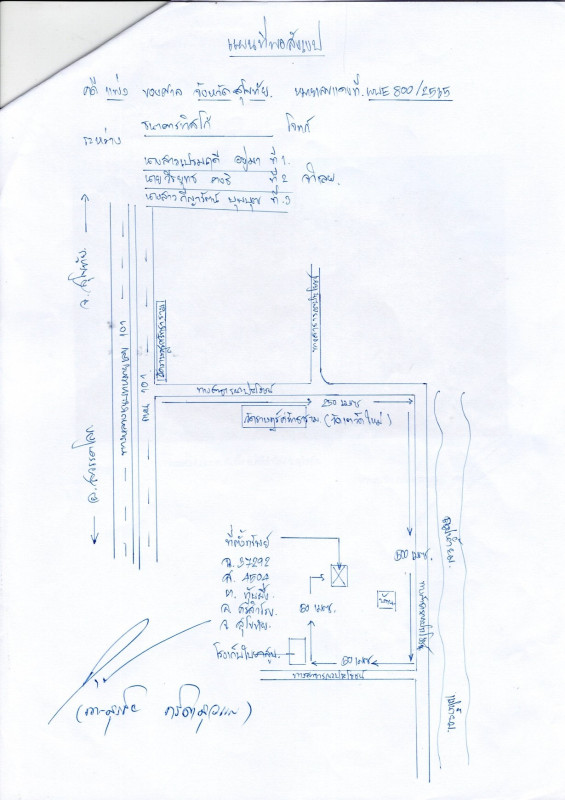 แผนที่พอสังเขป
คดี แพ่ง ของศาล จังหวัดสุโขทัย. หมายเลขแดงที่. ผบE 800/2555
ระหว่าง
ธนาคารทิสโก้ โจทก์
นางสาวเปรมฤดี อยู่มา ที่ 1.
นาย ที่ 2 จำเลย.
นางสาว ที่ .3
จ.สุโขทัย.
อ.สวรรคโลก
ทางหลวงแผ่นดินหมายเลข 101
ถนน 101
ทางสาธารณประโยชน์
250 เมตร
(วัดเกาะใหม่)
500 เมตร.
แม่น้ำยม
ที่ตั้งทรัพย์
ฉ. 37292
ล. 4504
ต. ทับผึ้ง
อ. ศรีสำโรง
จ. สุโขทัย.
50 เมตร.
บ้าน
โรงเก็บใบยาสูบ.
50 เมตร
ทางสาธารณประโยชน์
แม่น้ำยม